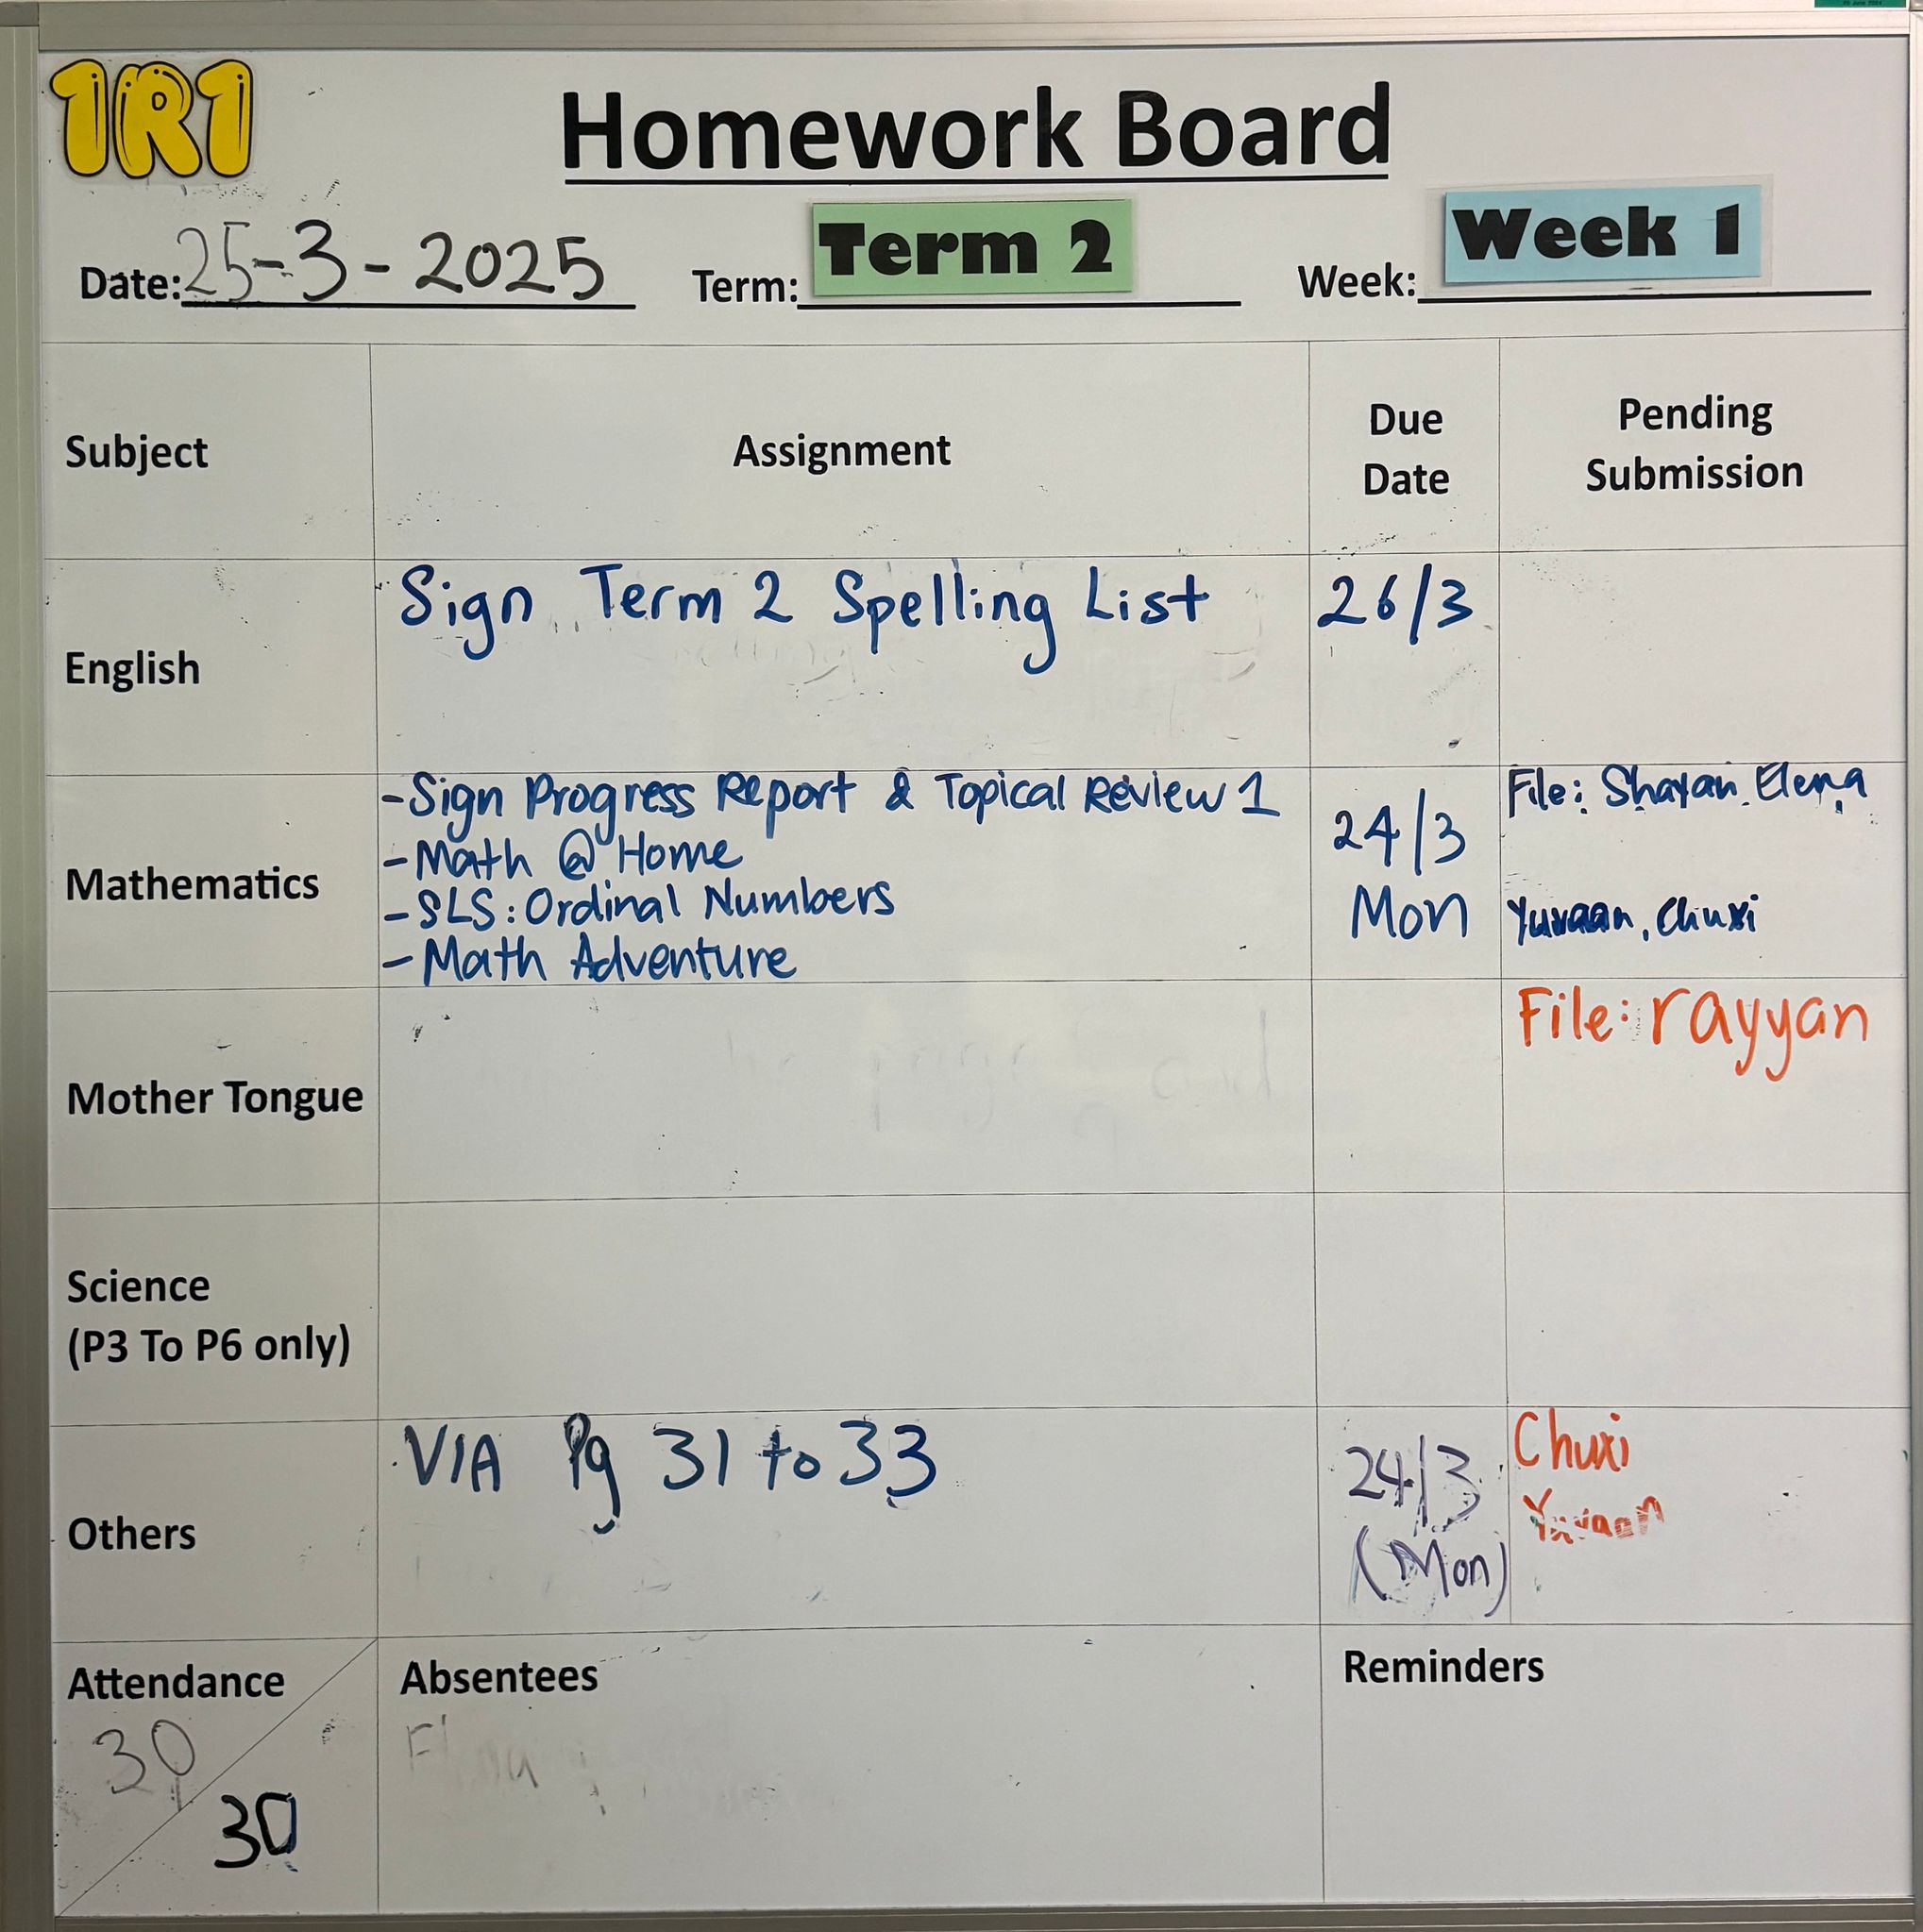 1R1
Homework Board
Date: 25-3-2025 Term: Term 2 Week: Week 1
Subject
Assignment
Due
Date
Pending
Submission
English
Sign Term 2 Spelling List
26/3
Mathematics
-Sign Progress Report & Topical Review 1
-Math @ Home
-SLS: Ordinal Numbers
-Math Adventure
24/3
Mon
File: Shayan, Elena
Yuvaan, Chuxi
Mother Tongue
File: rayyan
Science
(P3 To P6 only)
Others
VIA Pg 31 to 33
24/3
(Mon)
Chuxi
Yuvaan
Attendance
30
30
Absentees
Reminders